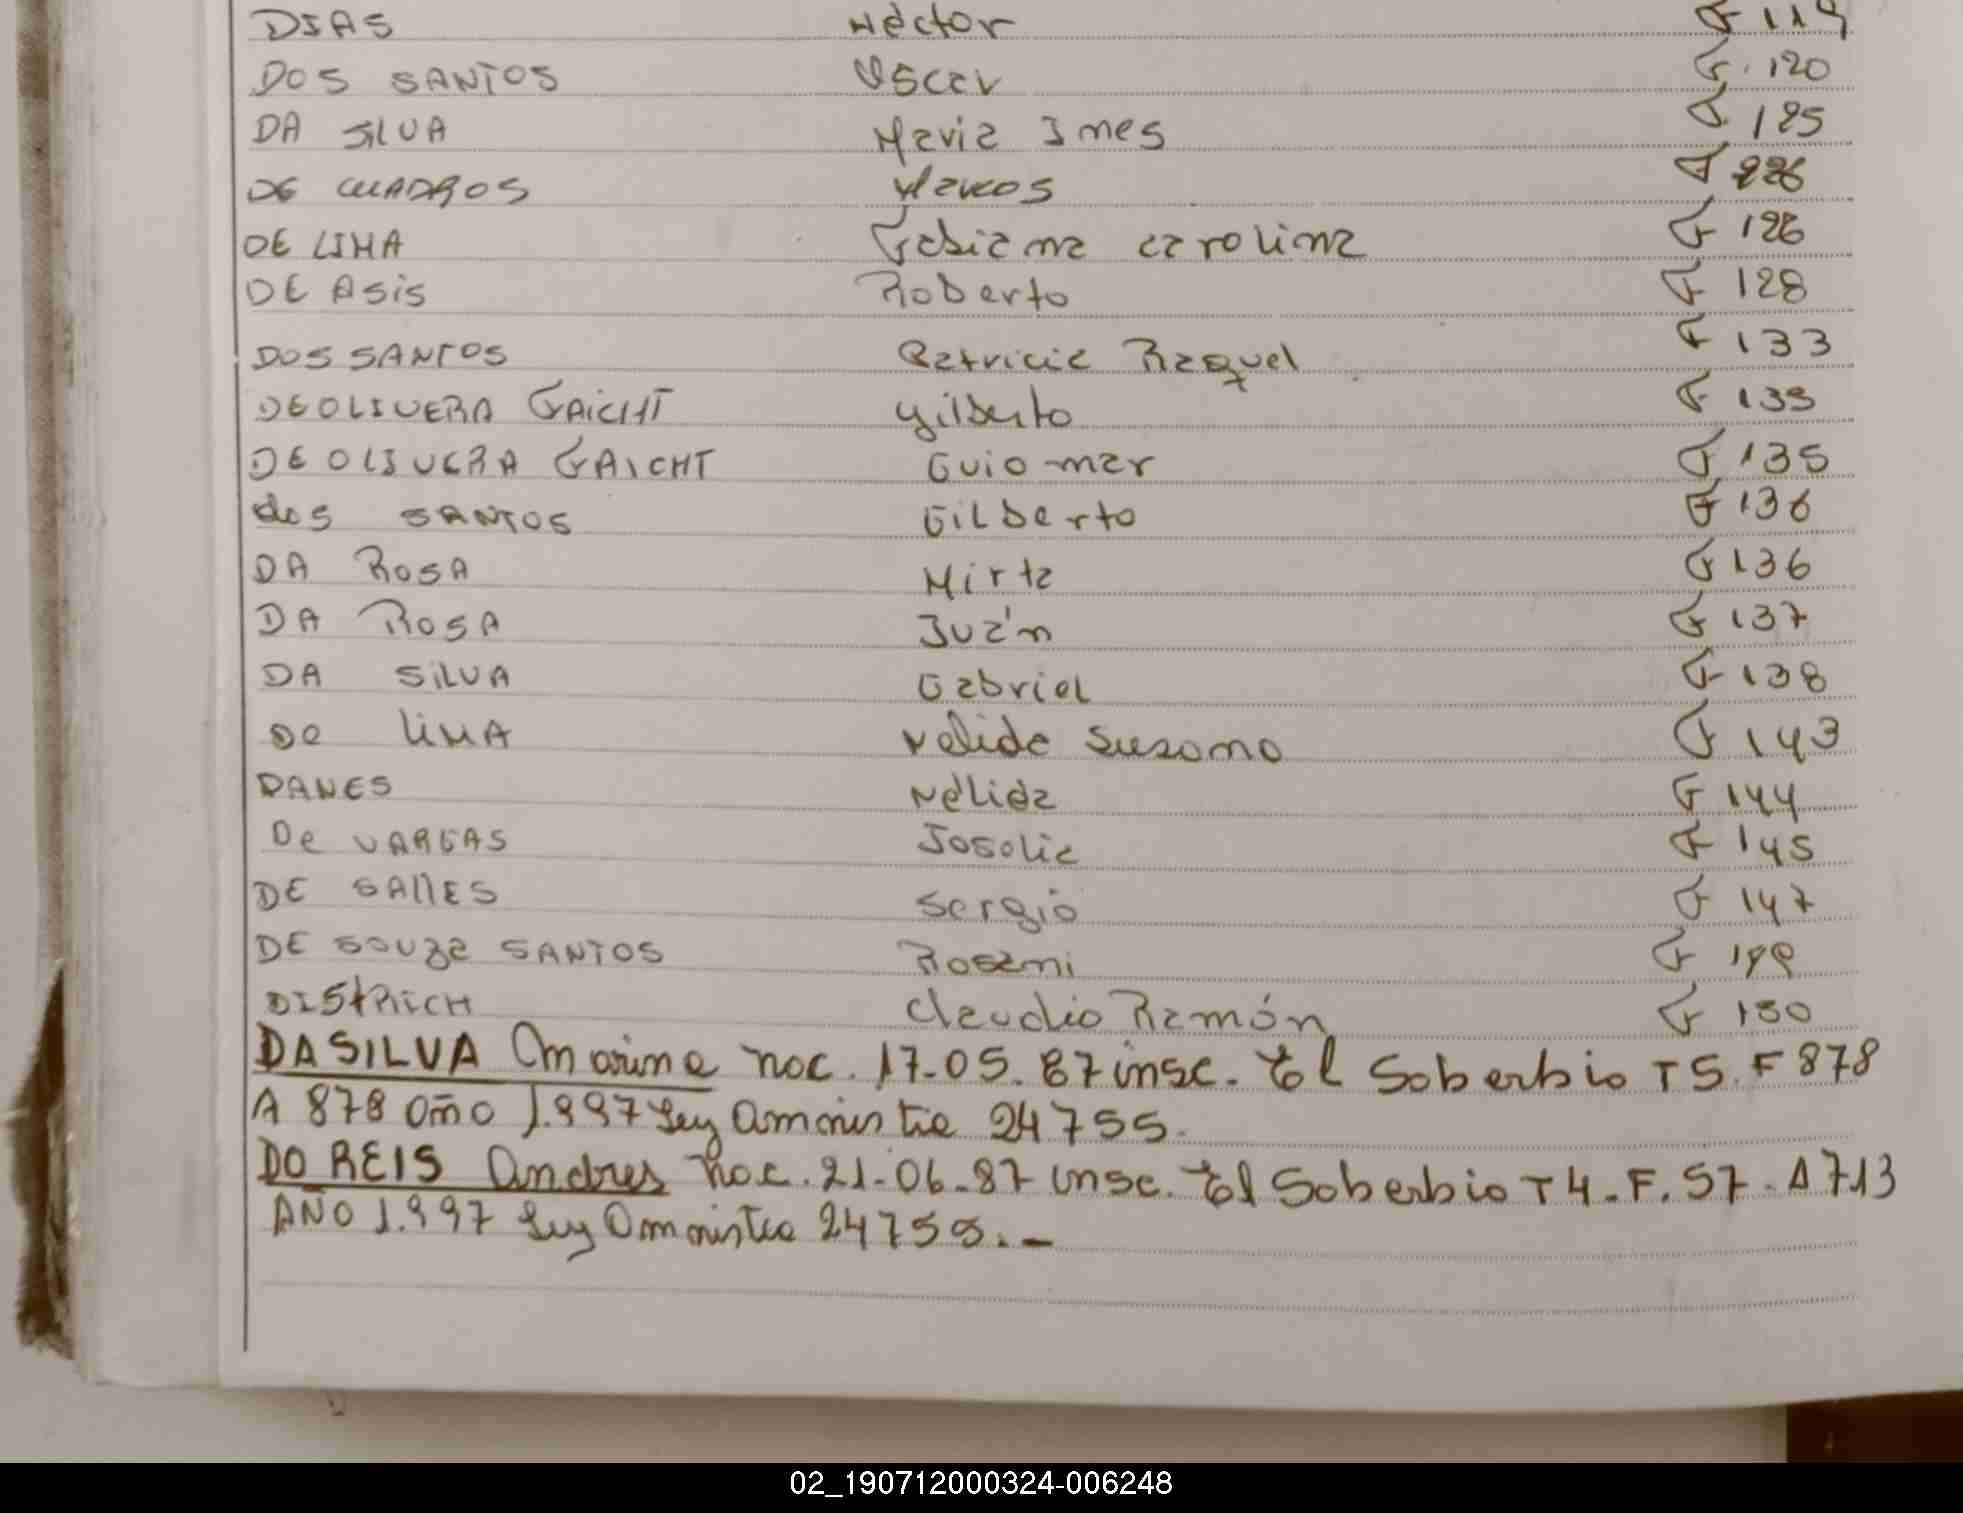 DIAS Néctor F 119
DOS SANTOS Oscar F. 120
DA SILVA Maria Ines F 125
DE CUADROS Marcos F 226
DE LIMA Fabiana carolina F 126
DE Asis Roberto F 128
DOS SANTOS Patricia Raquel F 133
DEOLIVERA GAICHT gilberto F 135
DE OLIVERA GAICHT Guiomar F 135
dos SANTOS GilberTo F 136
DA ROSA Mirta F 136
DA ROSA Juán F 137
DA SiLVA Gabriel F 138
De LiMA Nelida Susana F 143
DANES Nélida F 144
De VARGAS Josolie F 145
DE SAllES Sergio F 147
DE SOUza SANTOS Rosani F 149
DIStRiCH Claudio Ramón F 150
DA SILVA Marina nac. 17-05.87 insc. El Soberbio T 5. F 878
A 878 año 1.997 Ley amnistia 24755.
DO REIS Andres nac. 21-06-87 insc. El Soberbio T 4. F. 57. A 713
AÑO 1.997 Ley Amnistia 24755.-
02_190712000324-006248